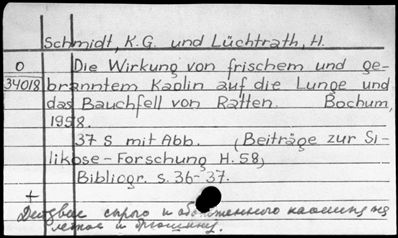 Schmidt, K. G. und Lüchtrath, H.
O
34018
Die Wirkung von frischem und ge-
branntem Kaolin auf die Lunge und
das Bauchfell von Ratten. Bochum,
1958.
37 S mit Abb. (Beiträge zur Si-
likose-Forschung H. 58)
Bibliogr. s. 36-37.
+
сырого и обожженного каолина на
легкое и брюшину.